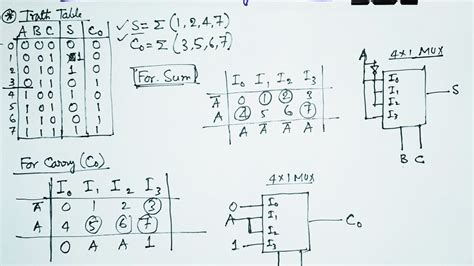 * Truth Table
A B C S C₀
0 0 0 0 0 0
1 0 0 1 1 0
2 0 1 0 1 0
3 0 1 1 0 1
4 1 0 0 1 0
5 1 0 1 0 1
6 1 1 0 0 1
7 1 1 1 1 1
✓ S = Σ (1, 2, 4, 7)
✓ C₀ = Σ (3, 5, 6, 7)
For Sum
I₀ I₁ I₂ I₃
A̅ 0 1 2 3
A 4 5 6 7
A A̅ A̅ A
4x1 MUX
A
I₀
I₁
I₂
I₃
S
B C
For Carry (C₀)
I₀ I₁ I₂ I₃
A̅ 0 1 2 3
A 4 5 6 7
0 A A 1
4x1 MUX
0 I₀
A I₁
I₂
1 I₃
C₀